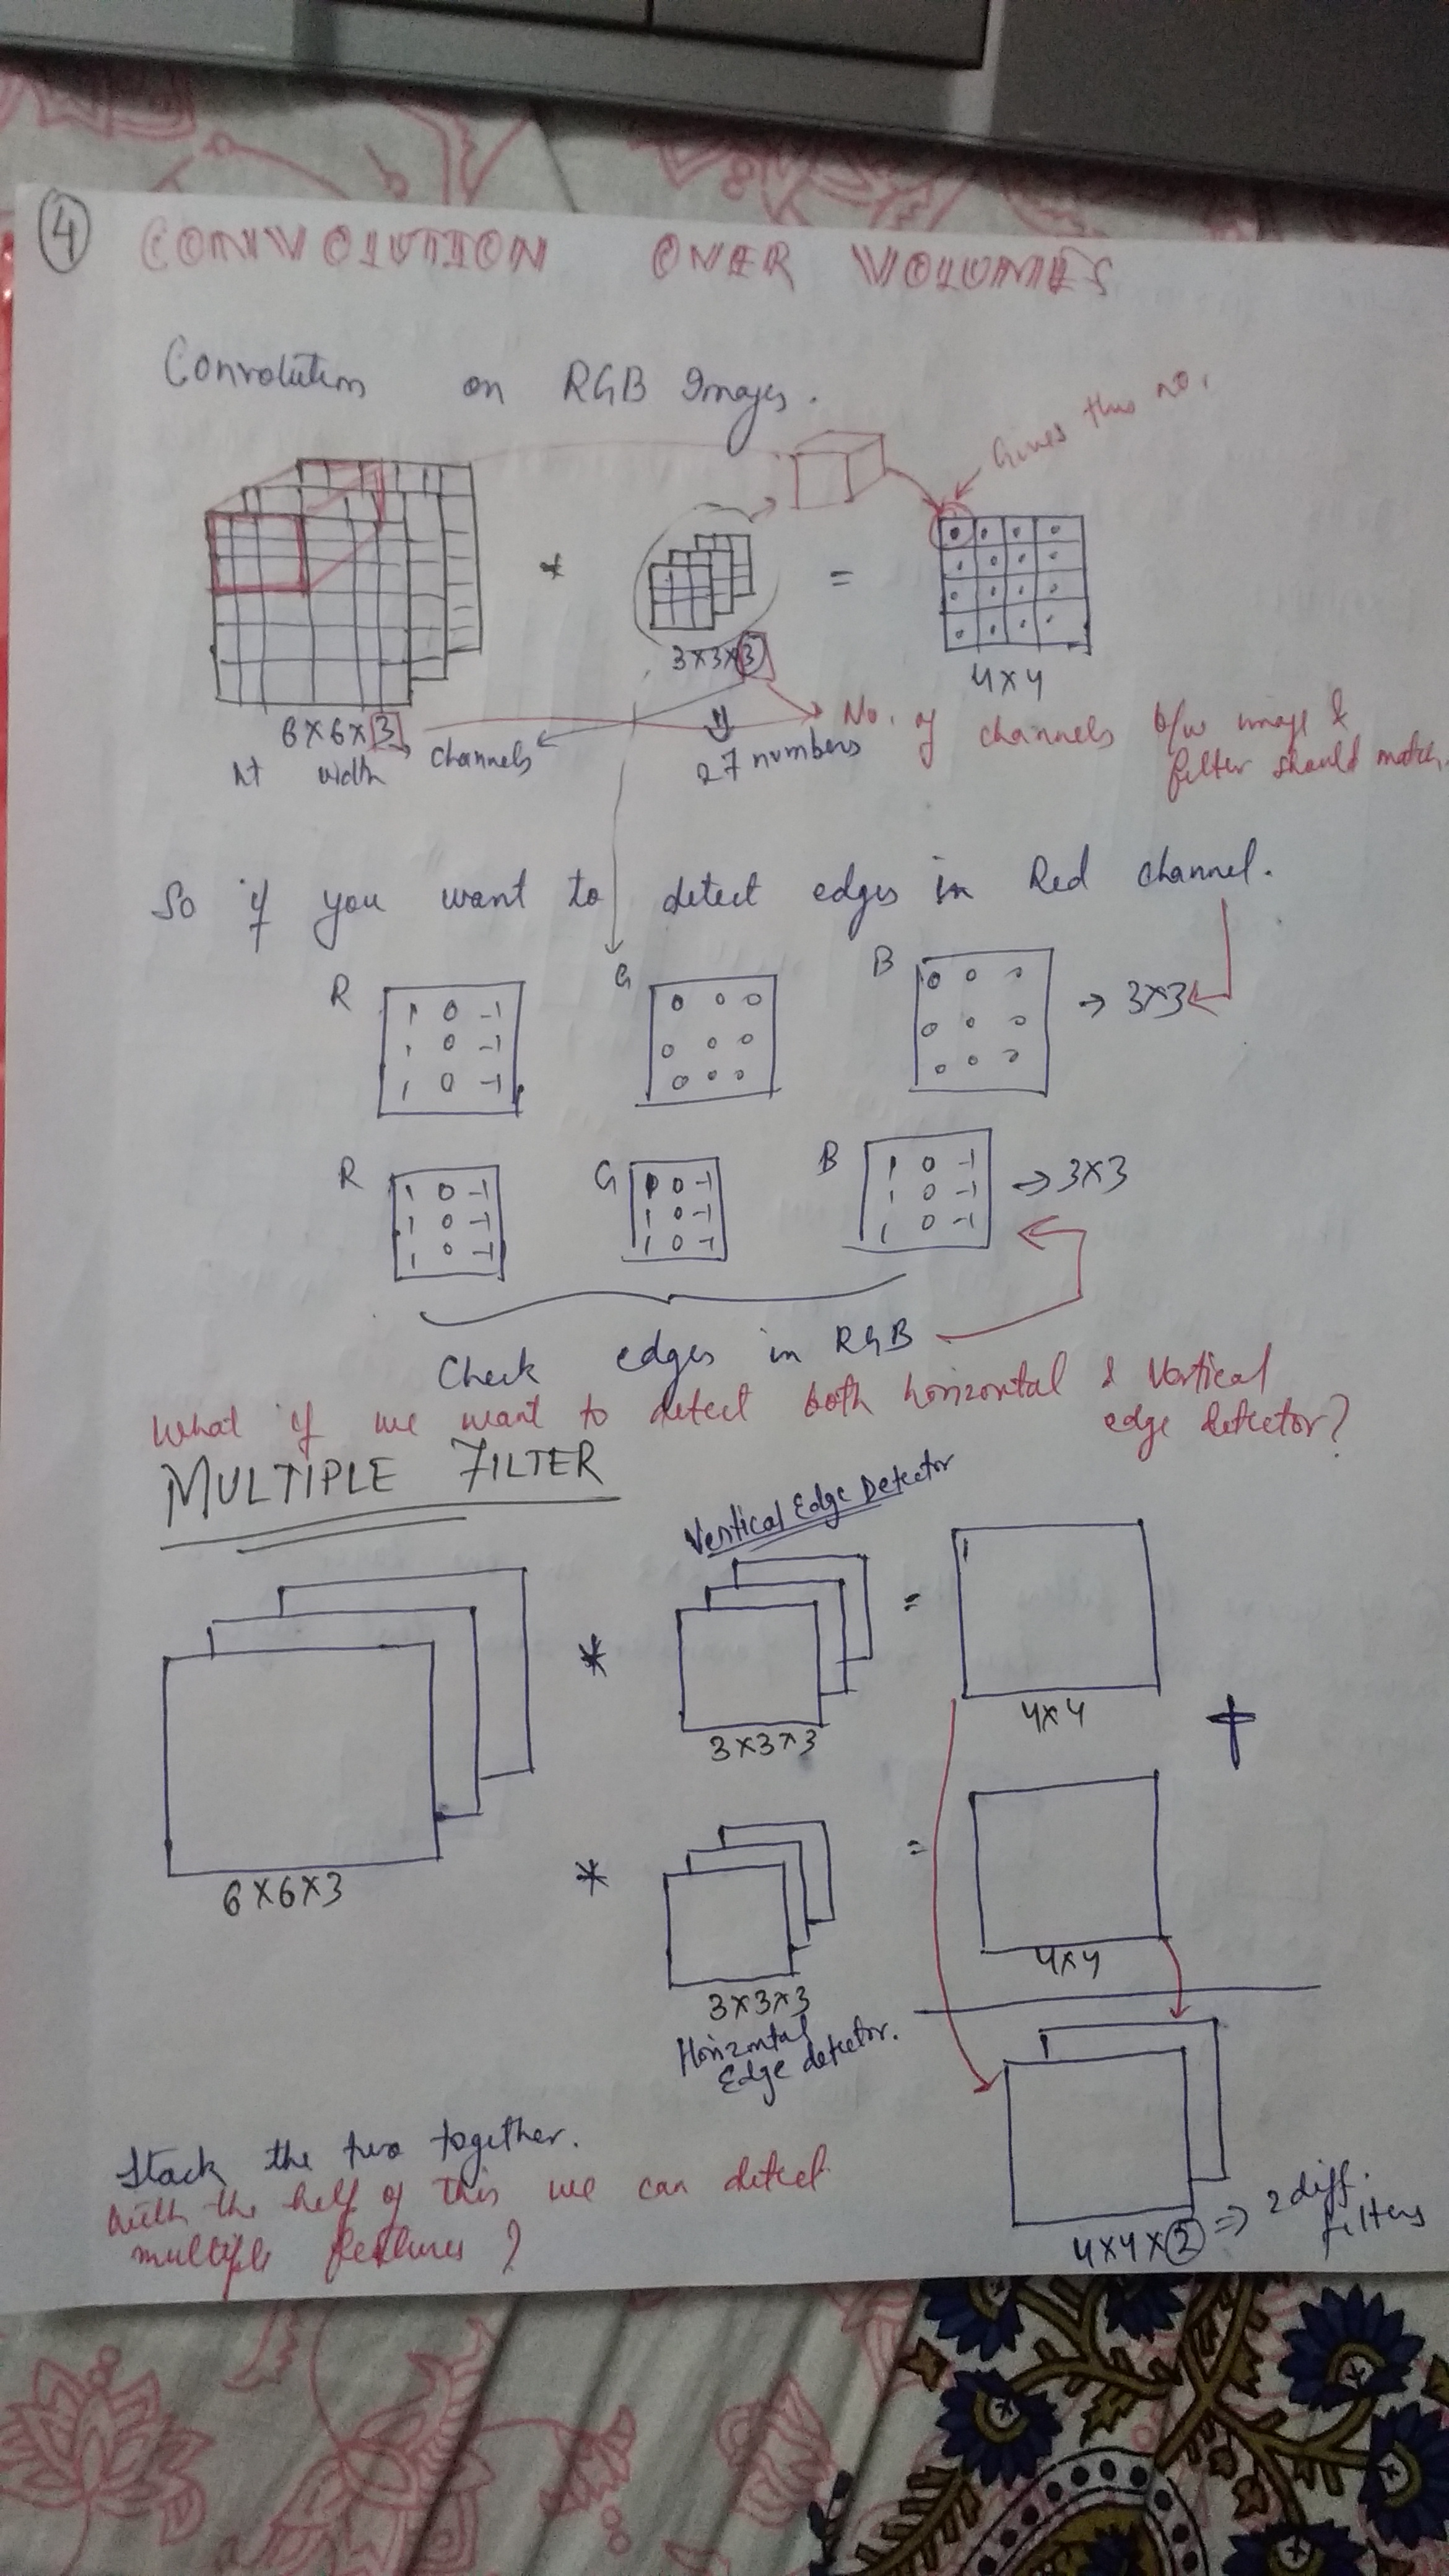 ④ CONVOLUTION OVER VOLUMES
Convolution on RGB Images.
Gives this no.
* =
3×3×3
4×4
6×6×3
ht width channels
27 numbers
No. of channels b/w image &
filter should match.
So if you want to detect edges in Red channel.
R G B
1 0 -1 0 0 0 0 0 0
1 0 -1 0 0 0 0 0 0 → 3×3
1 0 -1 0 0 0 0 0 0
R G B
1 0 -1 1 0 -1 1 0 -1
1 0 -1 1 0 -1 1 0 -1 → 3×3
1 0 -1 1 0 -1 1 0 -1
Check edges in RGB
What if we want to detect both horizontal & Vertical
edge detector?
MULTIPLE FILTER
Vertical Edge Detector
* =
3×3×3
4×4
+
6×6×3
* =
3×3×3
4×4
Horizontal
Edge detector.
Stack the two together.
with the help of this we can detect
multiple features?
4×4×2 ⇒ 2 diff.
filters